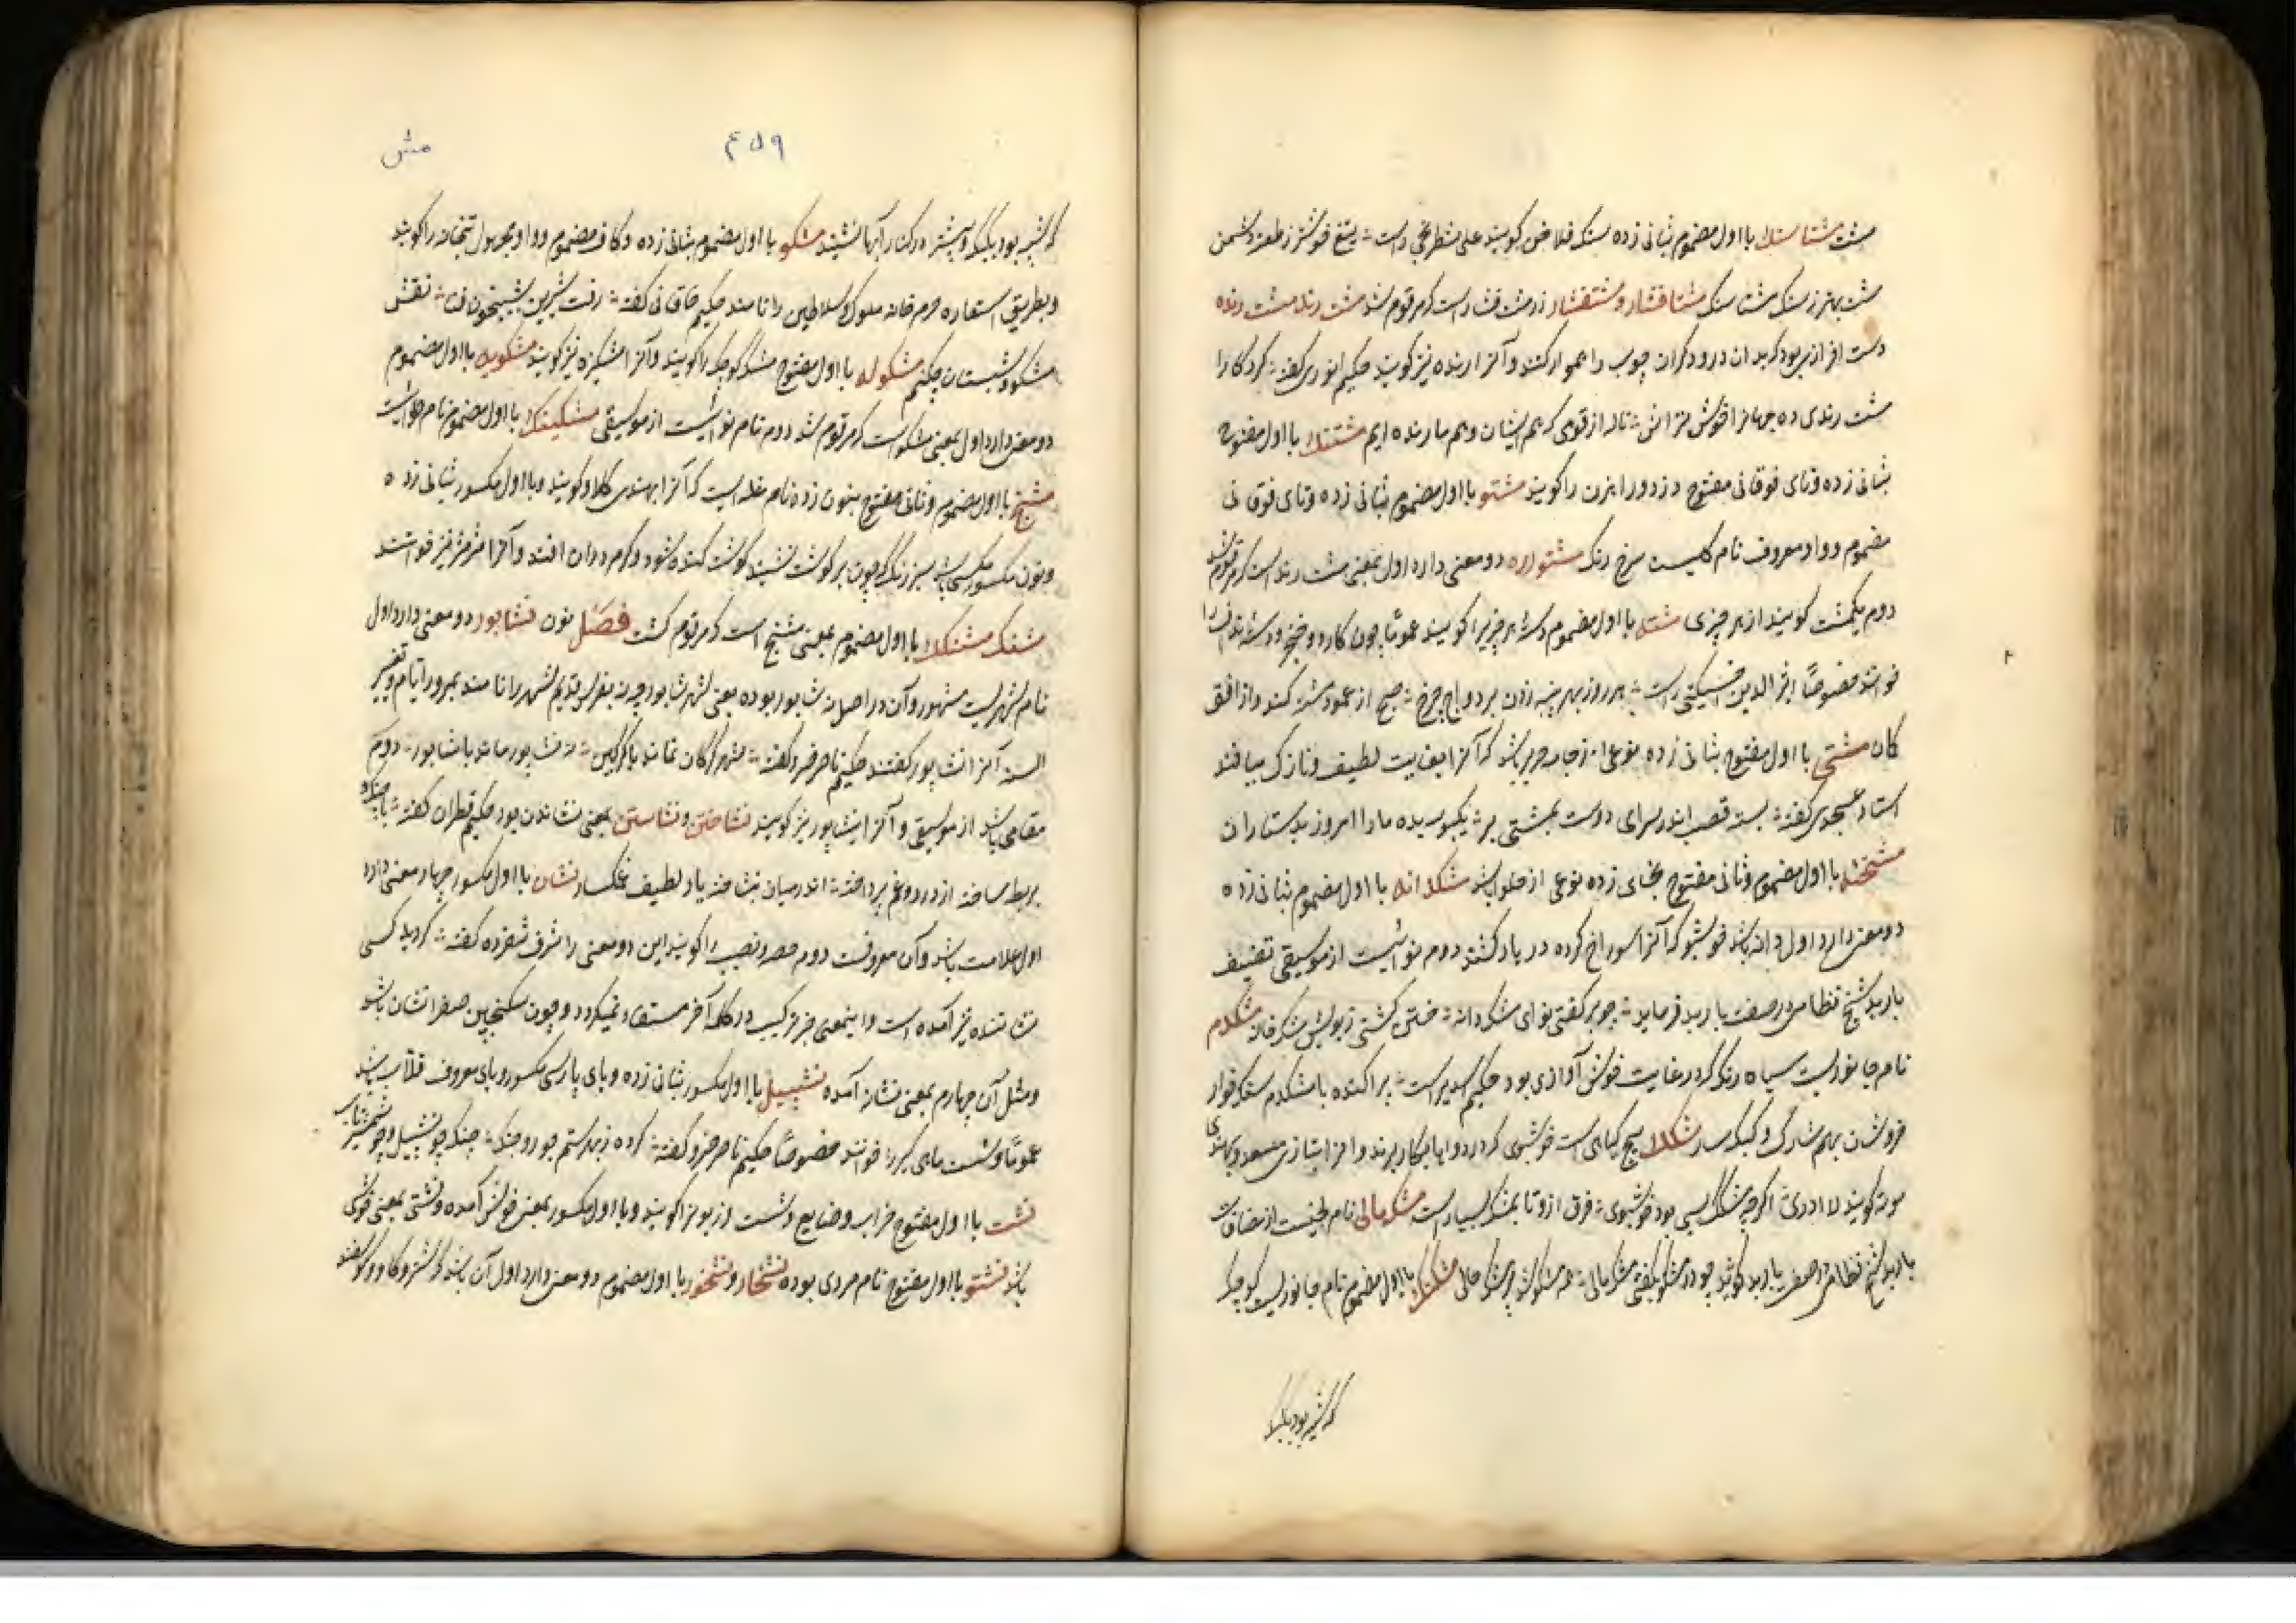 مشت مشتاسنک با اول مضموم بثانی زده سنک فلاخن کویند علی شطرنجی راست تیغ خوشتر ز طعن دشمن
مشت بهتر ز سنک مشتاسنک مشتافشار و مشتفشار زر مشت فشار است که مرقوم شد مشت رند مشت رنده
دست افزاری بود که بدان درودکران چوب را هموار کنند و آنرا رنده نیز کویند حکیم انوری کفته کرد کار را
مشت رندی ده جهانرا خوش تراش تا از قومی که هم ایشان و هم ما رنده ایم مشتنک با اول مفتوح
بثانی زده و تای فوقانی مفتوح دزد و راهزن را کویند مشتو با اول مضموم بثانی زده و تای فوقانی
مضموم و واو معروف نام کلیست سرخ رنک مشتواره دو معنی دارد اول بمعنی مشت رند است که مرقوم شد
دوم یکمشت کویند از هر چیزی مشته با اول مضموم دسته هر چیزیرا کویند عموما چون کارد و خنجر و
خوانند خصوصا اثیر الدین اخسیکتی راست هر روز بهر پنبه زدن بر دواج چرخ صبح از عمود مشته کند و از افق
کمان مشتی با اول مفتوح بثانی زده نوعی از جامه حریر باشد که آنرا بغایت لطیف و نازک ببافند
استاد عسجدی کفته بسته قصب اندر سرای دوست بمشتی بر یکبوسه بده ما را امروز بدستاران
مشخته با اول مضموم و ثانی مفتوح بخای زده نوعی از حلوا باشد مشکدانه با اول مضموم بثانی زده
دو معنی دارد اول دانه باشد خوشبو که آنرا سوراخ کرده در یاد کشند دوم نوائیست از موسیقی تصنیف
باربد شیخ نظامی در صفت باربد فرماید چو بر کفتی نوای مشکدانه ختن کشتی ز بویش مشک خانه مشکدم
نام جانوریست سیاه رنک که در غایت خوش آوازی بود حکیم اسدی راست پراکنده با مشکدم سنکخوار
خروشان بهم شارک و کبک سار مشکک بیخ کیاهی است خوشبوی که در دواها بکار برند و آنرا بتازی سعد و بهندی
موته کویند لا ادری اکرچه مشکک بسی بود خوشبوی فرق ازو تا بمشک بسیار است مشکمالی نام لحنیست از مصنفات
باربد شیخ نظامی در صفت باربد کوید چو در مشکو بکفتی مشکمالی همه مشکو شدی پر مشک حالی مشکنک با اول مضموم نام جانوریست کوچک
که شبیه بود بکیک
۴۵۹
مش
که شبیه بود بکیک و بیشتر در کنار آبها نشیند مشکو با اول مضموم بثانی زده و کاف مضموم و واو مجهول بتخانه را کویند
و بطریق استعاره حرم خانه ملوک و سلاطین را نامند حکیم خاقانی کفته رفت شیرین بشبیخون فنا نقش
مشکو و شبستان چکنم مشکوله با اول مفتوح مشک کوچک را کویند و آنرا مشکیزه نیز کویند مشکویه با اول مضموم
دو معنی دارد اول بمعنی مشکو است که مرقوم شد دوم نام نوائیست از موسیقی مشکینک با اول مضموم نام حلوائیست
مشنج با اول مضموم و ثانی مفتوح بنون زده نام غله ایست که آنرا بهندی کلاو کویند و با اول مکسور بثانی زده
و نون مکسور مکسی باشد سبز رنک که چون بر کوشت نشیند کوشت کنده شود و کرم در آن افتد و آنرا خرمکس نیز خوانند
مشنک مشنکک با اول مضموم بمعنی مشنج است که مرقوم کشت فصل نون نشابور دو معنی دارد اول
نام شهریست مشهور و آن در اصل نه شاپور بوده یعنی شهر شاپور چه نه بفرس قدیم شهر را نامند بمرور ایام و تغییر
السنه آنرا نشاپور کفتند حکیم ناصر خسرو کفته شهر کرکان نماند با کرکین نه نشاپور ماند با شاپور دوم
مقامی باشد از موسیقی و آنرا نیشاپور نیز کویند نشاختن و نشاستن بمعنی نشاندن بود حکیم قطران کفته
بربط ساخته از درد و غم پرداخته اندر میان نشاخته یار لطیف غمکسار نشان با اول مکسور چهار معنی دارد
اول علامت باشد و آن معروفست دوم حصه و نصیب را کویند این دو معنی را شرف شفروه کفته کردید کسی
نشاننده نیز آمده است و اینمعنی جز ترکیب در کلمه آخر مستفاد نمیکردد و چون سکنجبین صفرا نشان باشد
و مثل آن چهارم بمعنی نشانه آمده نشپیل با اول مکسور بثانی زده و بای پارسی مکسور و یای معروف قلاب باشد
عموما و شست ماهی کیر را خوانند خصوصا حکیم ناصر خسرو کفته کرده ز بهر ستم جور و جنک چنک چو نشپیل و چو شمشیر ناب
نشت با اول مفتوح خراب و ضایع و شست و زبونرا کویند و با اول مکسور بمعنی خوش آمده و نشتی بمعنی خوشی
باشد نشتو با اول مفتوح نام مردی بوده نشخار و نشخور با اول مضموم دو معنی دارد اول آن باشد که شتر و کاو و کوسفند